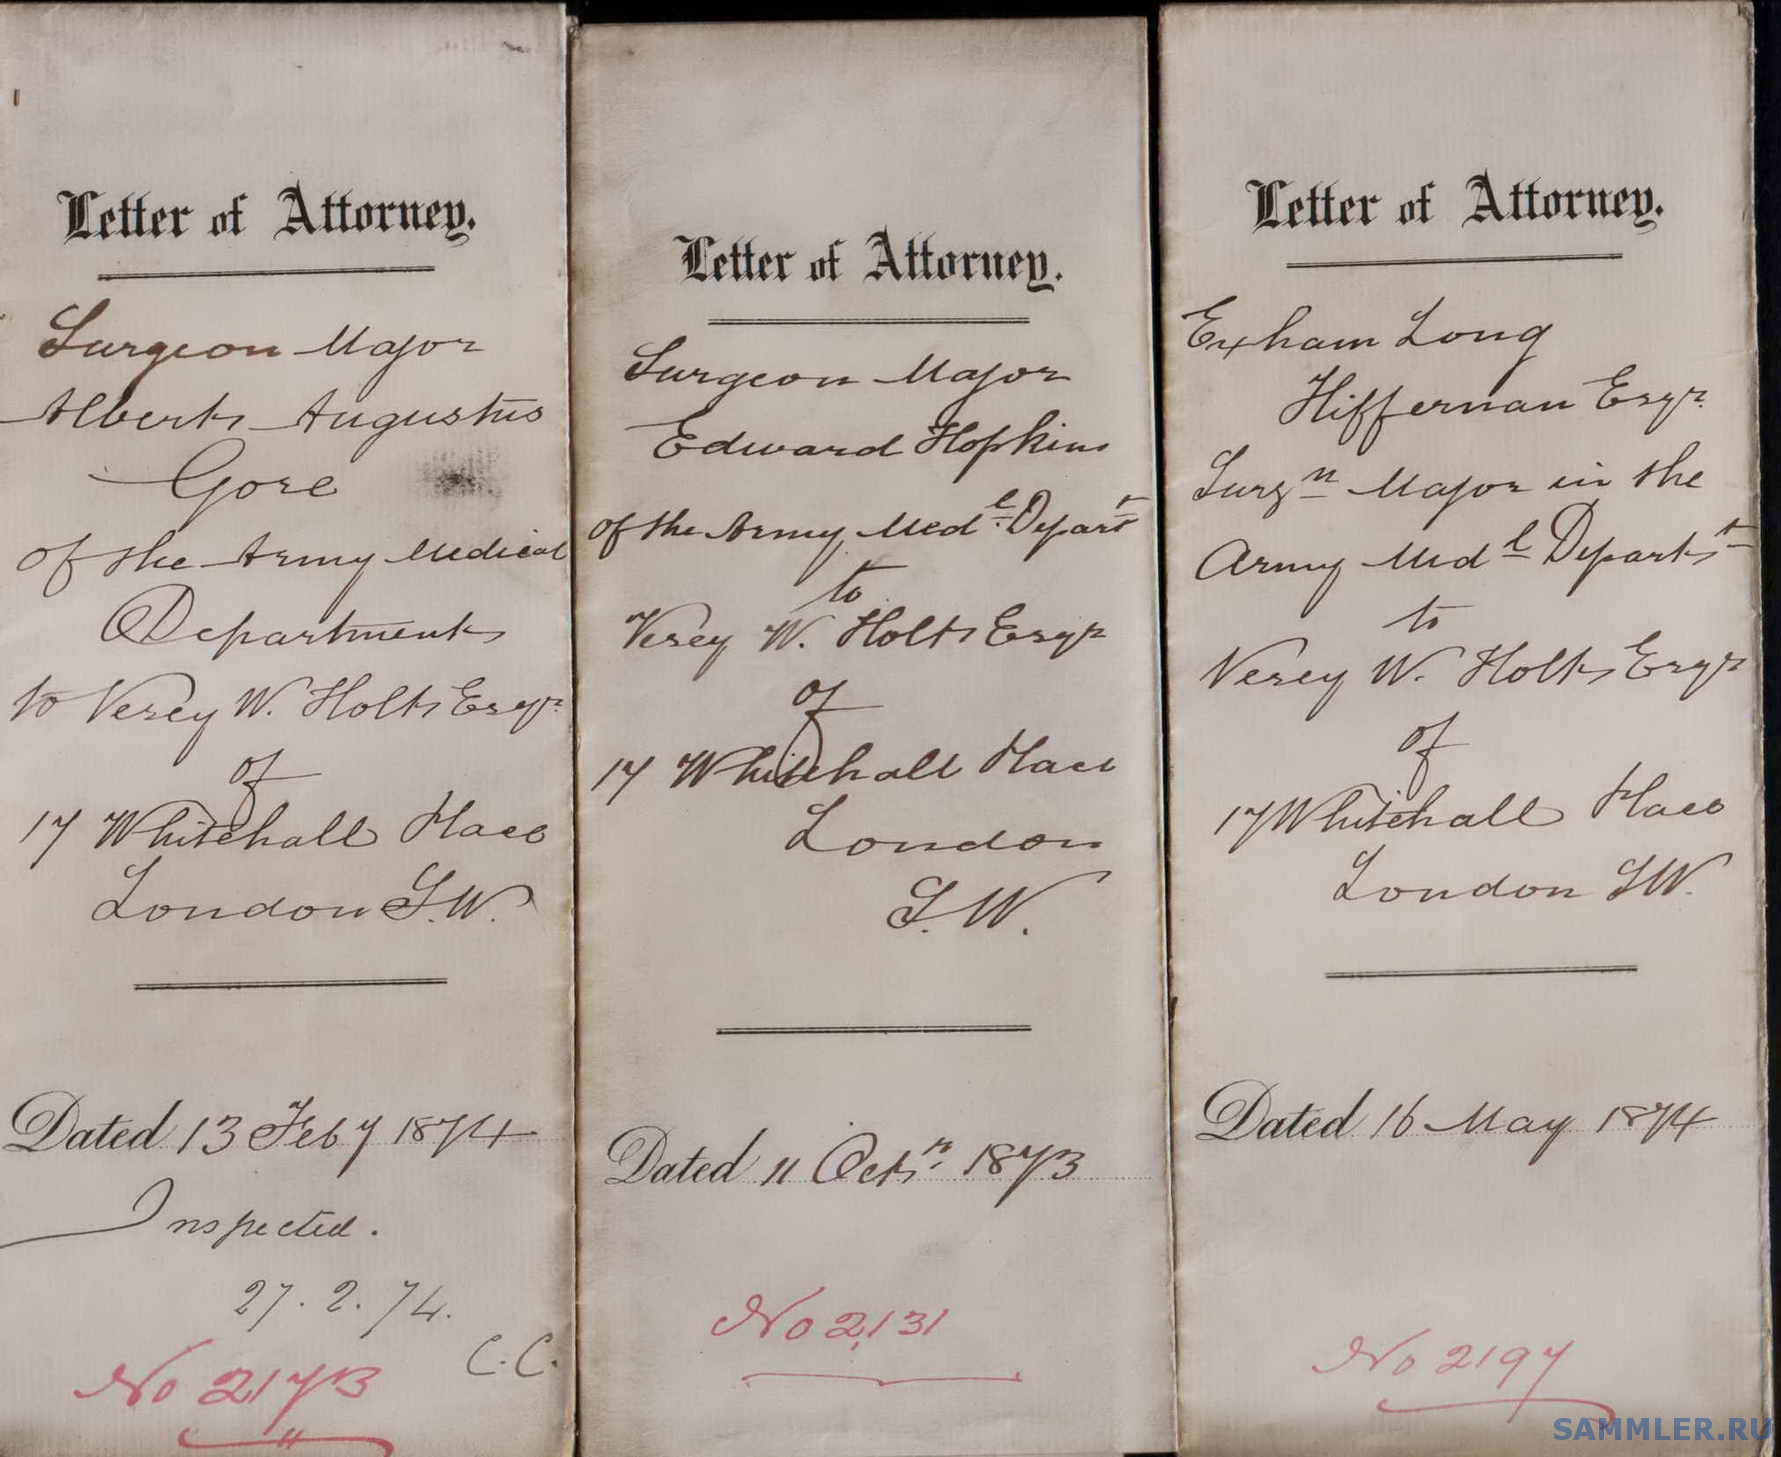 Letter of Attorney.
Surgeon Major
Albert Augustus
Gore
of the Army Medical
Department
to Verey W. Holt Esqr.
of
17 Whitehall Place
London S.W.
Dated 13 Feby 1874
Inspected.
27. 2. 74.
C. C.
No 2173
Letter of Attorney.
Surgeon Major
Edward Hopkins
of the Army Medl. Depart
to
Verey W. Holt Esqr
of
17 Whitehall Place
London
S. W.
Dated 11 Octr. 1873
No 2131
Letter of Attorney.
Exham Long
Hiffernan Esqr.
Surgn Major in the
Army Medl Departt
to
Verey W. Holt Esqr
of
17 Whitehall Place
London SW.
Dated 16 May 1874
No 2197
SAMMLER.RU